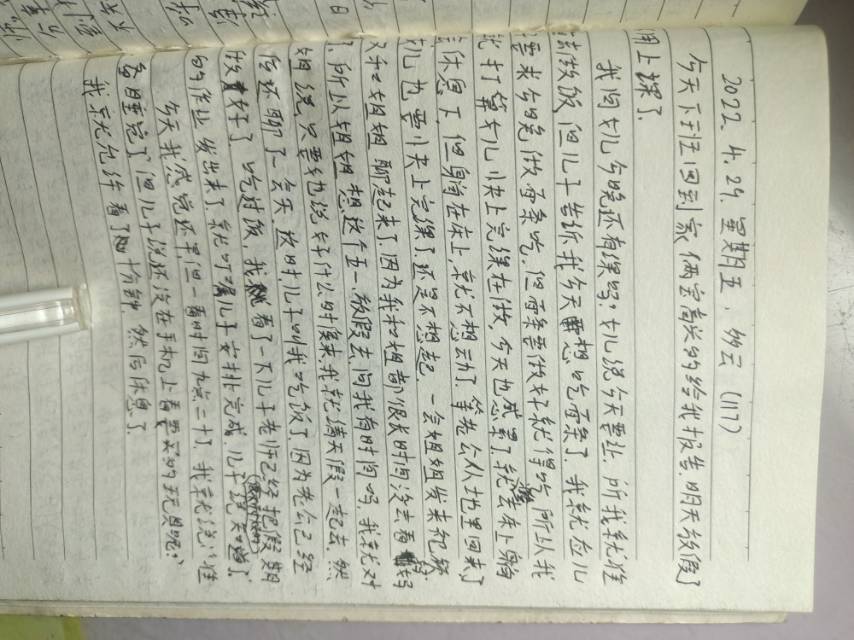 2022.4.29.星期五，多云（117）
今天下班回到家，俩宝高兴的给我报告，明天放假了
用上课了.
我问女儿今晚还有课吗?女儿说今天要让,所我就准
做饭,但儿子告诉我今天想吃面条了.我就应儿
要求今晚做面条吃.但面条要做好就得吃,所以我
打算女儿快上完课在做,今天也感累了就去床上躺
休息下,但躺在床上就不想动了.等老公从地里回来了
女儿也要快上完课了.还是不想起.一会姐姐发来视频
又和姐姐聊起来了.因为我和姐都很长时间没去看妈
了.所以姐姐想这个五一放假去,问我有时间吗.我就对
姐说只要她说好什么时候来.我就满天假一起去.然
后还聊了会天.这时儿子叫我吃饭了.因为老公已经
做好了.吃过饭,我看了一下儿子老师已经把假期
的作业发出来了.就叮嘱儿子安排完成.儿子说知道了.
今天我感觉还早但一看时间九点二十了.我就说:"准
备睡觉了"但儿子说还没在手机上看要买的玩具呢?"
我就允许看了十分钟.然后休息了.